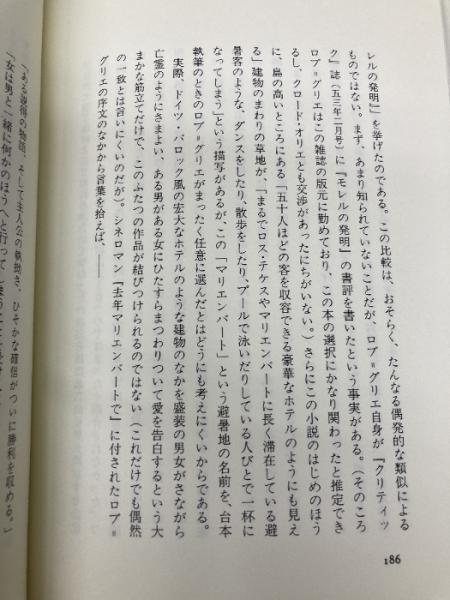 レルの発明』」を挙げたのである。この比較は、おそらく、たんなる偶発的な類似による
ものではない。まず、あまり知られていないことだが、ロブ=グリエ自身が『クリティッ
ク』誌(五三年二月号)に『モレルの発明』の書評を書いたという事実がある。(そのころ
ロブ=グリエはこの雑誌の版元に勤めており、この本の選択にかなり関わったと推定でき
るし、クロード・オリエとも交渉があったにちがいない。)さらにこの小説のはじめのほう
に、島の高いところにある「五十人ほどの客を収容できる豪華なホテルのようにも見え
る」建物のまわりの草地が、「まるでロス・テケスやマリエンバートに長く滞在している避
暑客のような、ダンスをしたり、散歩をしたり、プールで泳いだりしている人びとで一杯に
なってしまう」という描写があるが、この「マリエンバート」という避暑地の名前を、台本
執筆のときのロブ=グリエがまったく任意に選んだとはどうにも考えにくいからである。
実際、ドイツ・バロック風の宏大なホテルのような建物のなかを盛装の男女がさながら
亡霊のようにさまよい、ある男がある女にひたすらまつわりついて愛を告白するという大
まかな筋立てだけで、このふたつの作品が結びつけられるのではない(これだけでも偶然
の一致とは言いにくいのだが)。シネロマン『去年マリエンバートで』に付されたロブ=
グリエの序文のなかから言葉を拾えば、――
「ある説得の物語、そして主人公の執拗さ、ひそかな確信がついに勝利を収める。」
「女は男と一緒に何かのほうへと行って
186